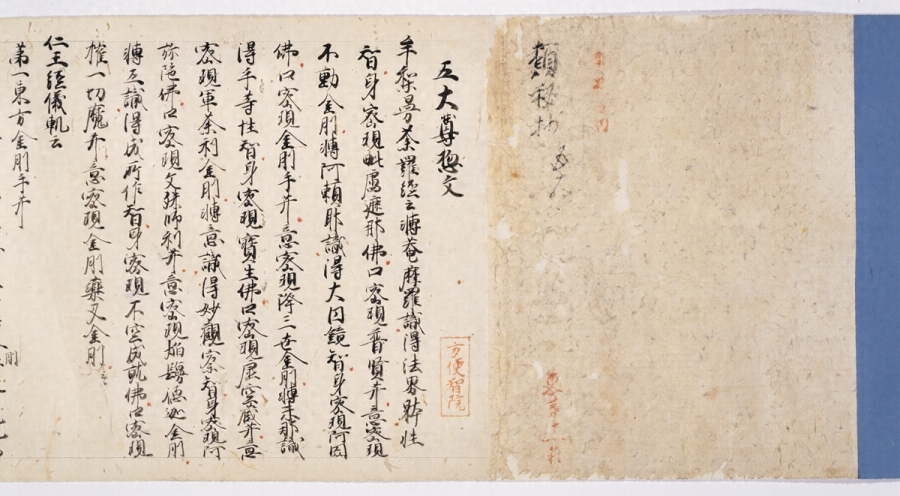 類秘抄
五大尊惣文
方便智院
牟梨曼荼羅經云轉菴摩羅識得法界躰性
智身密現毗盧遮那佛口密現普賢井意密現
不動金剛轉阿頼耶識得大円鏡智身密現阿閦
佛口密現金剛手井意密現降三世金剛轉末那識
得平等性智身密現寶生佛口密現虚空蔵井意
密現軍荼利金剛轉意識得妙觀察智身密現阿
弥陁佛口密現文殊師利井意密現焔鬘德迦金剛
轉五識得成所作智身密現不空成就佛口密現
摧一切魔井意密現金剛藥叉金剛
仁王經儀軌云
第一東方金剛手井